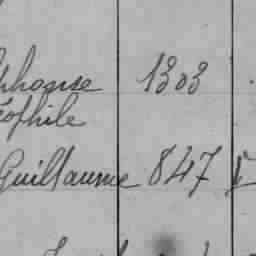 phonse 1303
éophile
Guillaume 847